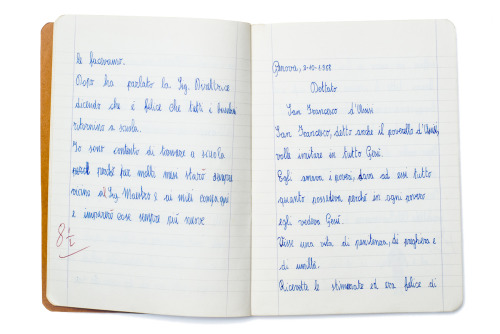 le facevamo.
Dopo ha parlato la Sig. Direttrice
dicendo che è felice che tutti i bambini
ritornino a scuola.
Io sono contento di tornare a scuola
perché per molti mesi starò sempre
vicino al Sig. Maestro e ai miei compagni
e imparerò cose sempre più nuove.
8 1/2
Genova, 2-10-1958
Dettato
San Francesco d'Assisi
San Francesco, detto anche il poverello d'Assisi,
volle imitare in tutto Gesù.
Egli amava i poveri, dava ad essi tutto
quanto possedeva perché in ogni povero
egli vedeva Gesù.
Visse una vita di penitenza, di preghiera e
di umiltà.
Ricevette le stimmate ed era felice di